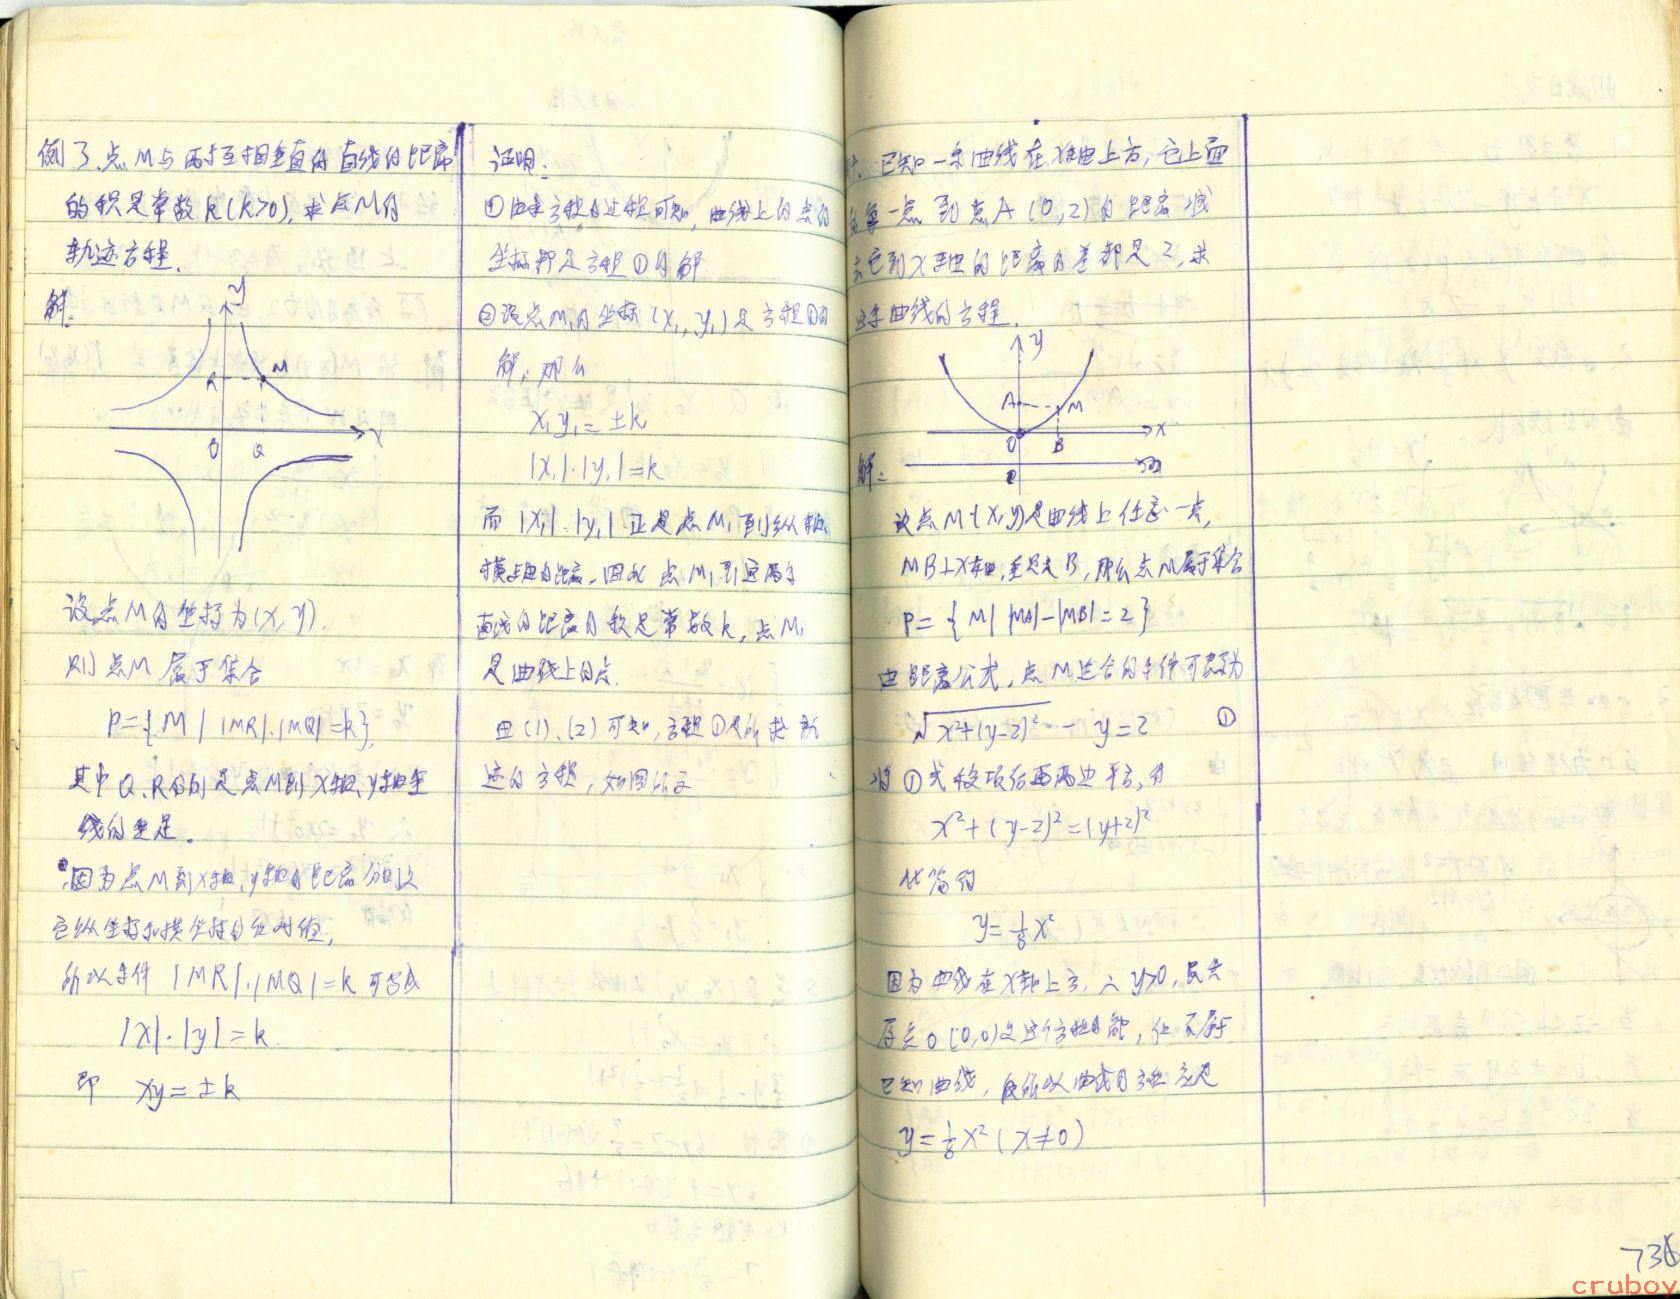 例3.点M与两条互相垂直的直线的距离
的积是常数k(k>0),求点M的
轨迹方程.
解:
y
R
M
O
Q
x
设点M的坐标为(x,y).
则点M属于集合
P={M| |MR|·|MQ|=k},
其中Q、R分别是点M到x轴、y轴垂
线的垂足。
因为点M到x轴、y轴的距离分别是
它纵坐标和横坐标的绝对值,
所以条件|MR|·|MQ|=k可写成
|x|·|y|=k
即 xy=±k
证明:
①由求方程的过程可知,曲线上的点的
坐标都是方程①的解
②设点M₁的坐标(x₁,y₁)是方程①的
解,那么
x₁y₁=±k
|x₁|·|y₁|=k
而|x₁|·|y₁|正是点M₁到纵轴、
横轴的距离,因此点M₁到这两条
直线的距离的积是常数k,点M₁
是曲线上的点.
由(1)、(2)可知,方程①是所求轨
迹的方程,如图所示
已知一条曲线在x轴上方,它上面
的每一点到点A(0,2)的距离减
去它到x轴的距离的差都是2,求
这条曲线的方程.
y
A
M
O
B
x
解:
设点M(x,y)是曲线上任意一点,
MB⊥x轴,垂足是B,那么点M属于集合
P={M| |MA|-|MB|=2}
由距离公式,点M适合的条件可表示为
√x²+(y-2)² - y=2 ①
将①式移项后再两边平方,得
x²+(y-2)²=(y+2)²
化简得
y=⅛x²
因为曲线在x轴上方,∴y>0,虽然
原点O(0,0)是这个方程的解,但不属于
已知曲线,所以曲线的方程应是
y=⅛x²(x≠0)
cruboy